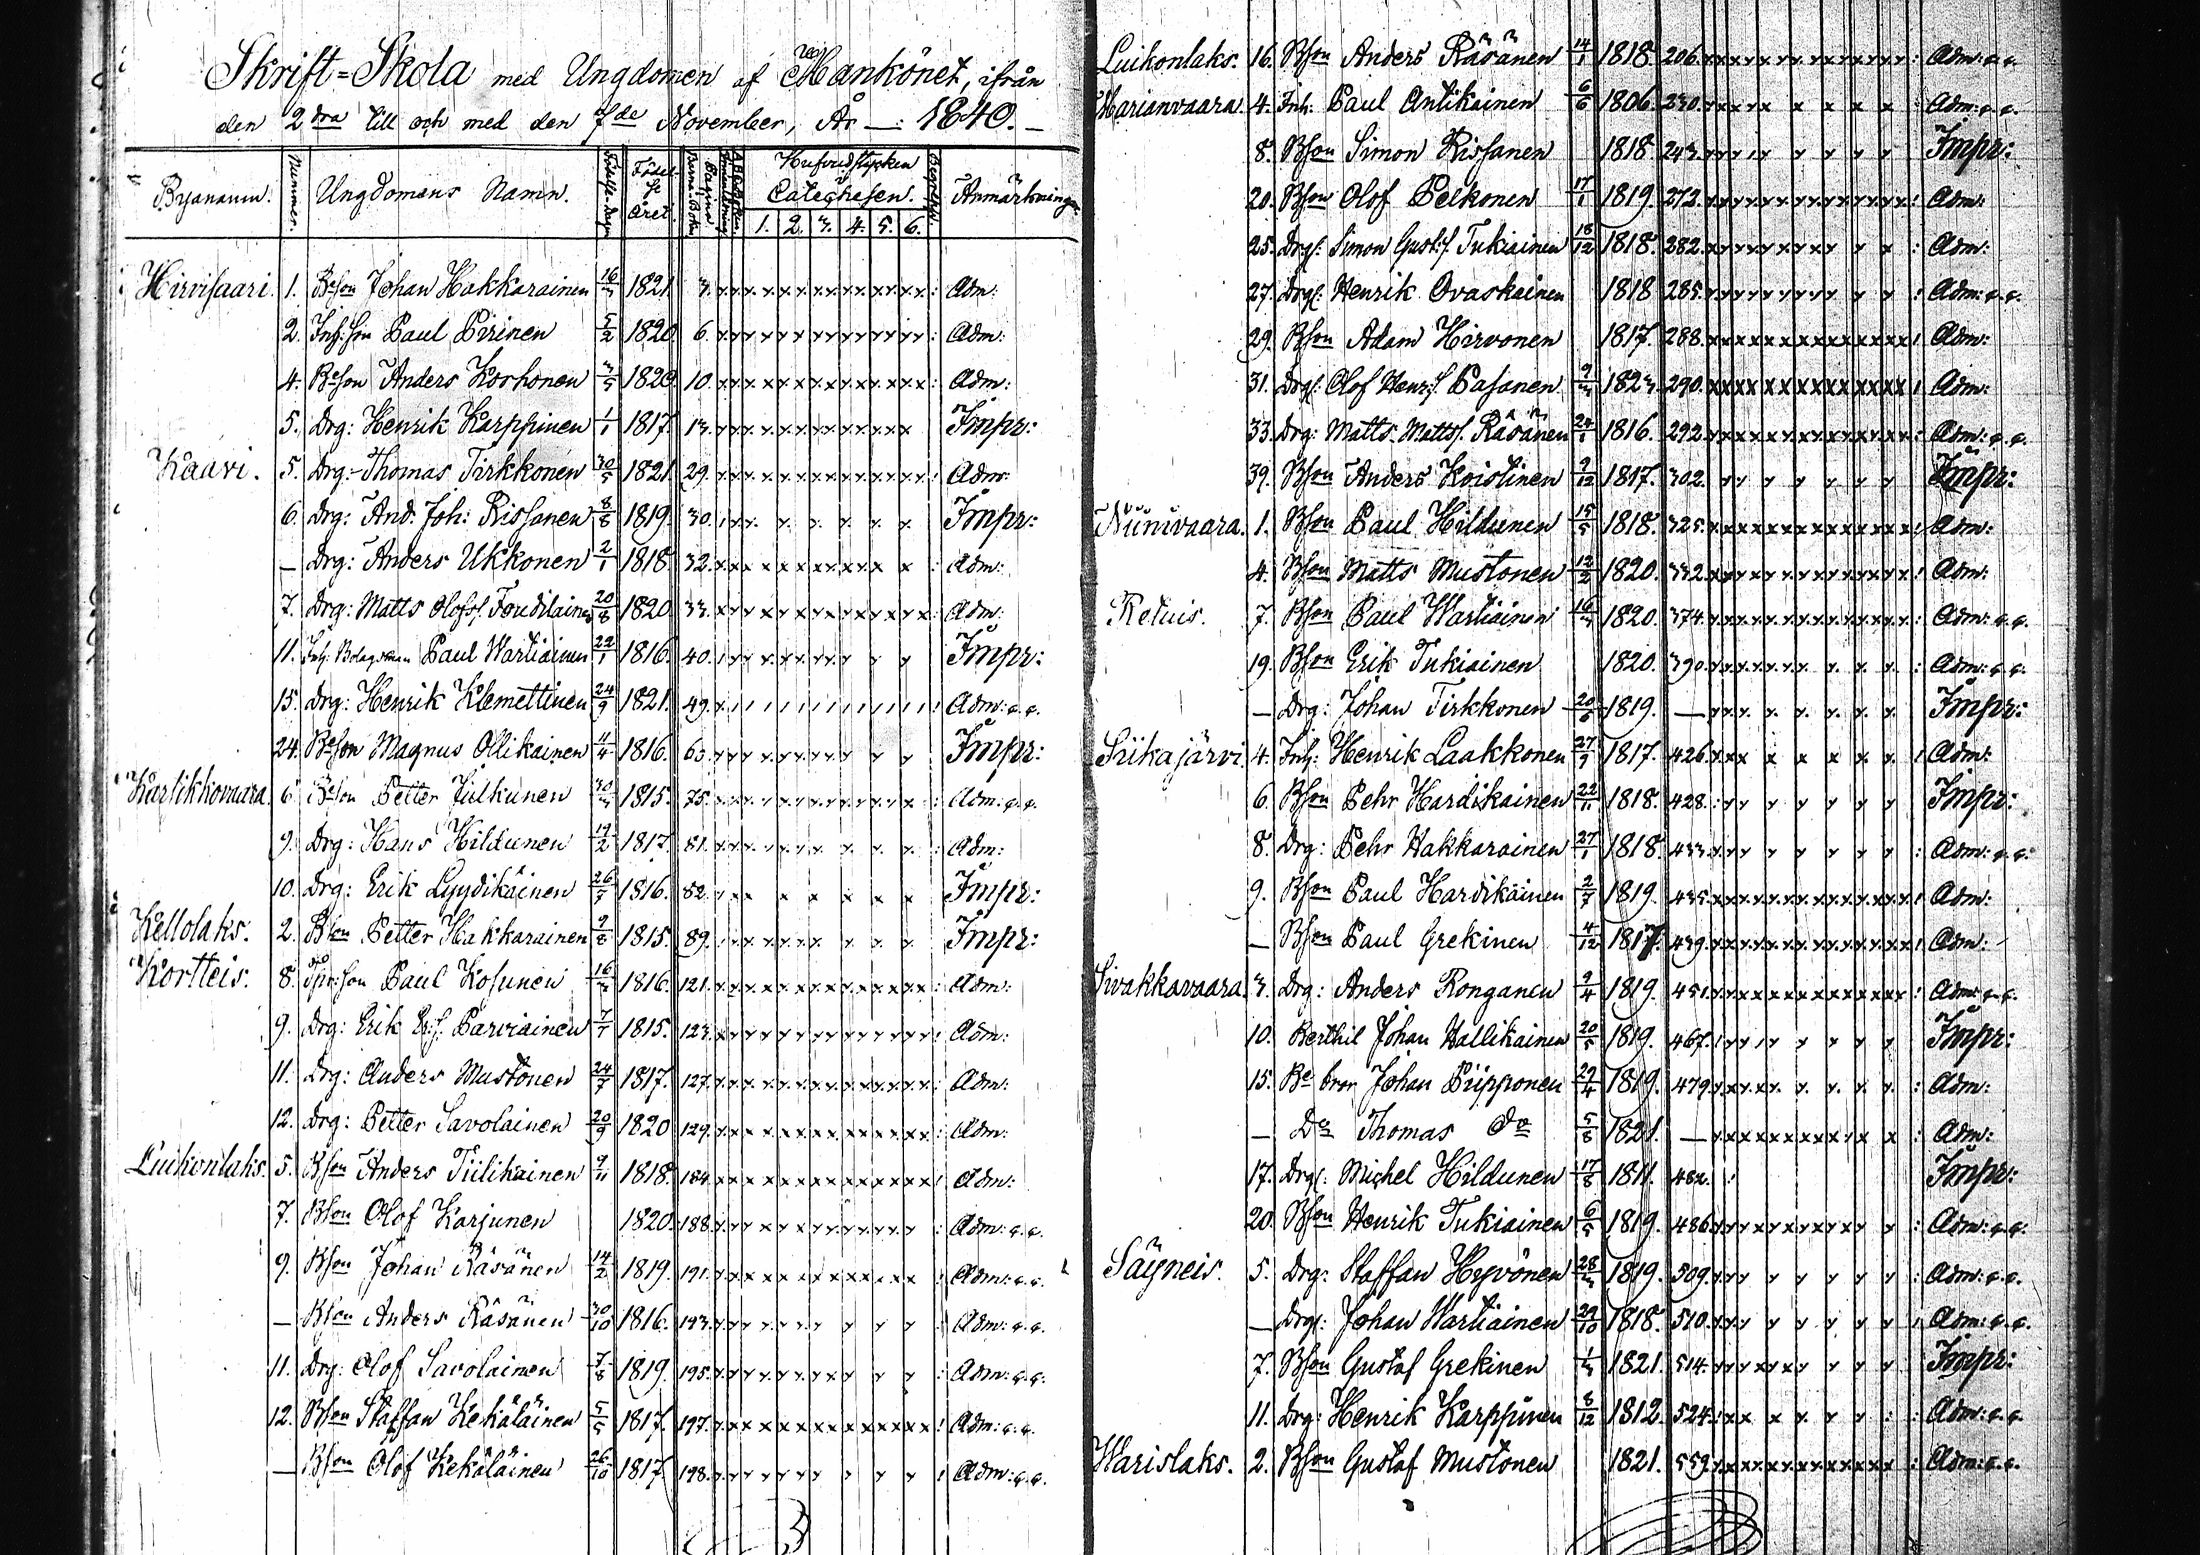 Skrift=Skola med Ungdomen af Mankönet, ifrån
den 2dra till och med den 7de November, År —: 1840. —
Byanamn. Nummer. Ungdomens Namn. Födelse- Året. Pagina Hufvudstycken Categhesen. Begrebet. Anmärkningar
1. 2. 3. 4. 5. 6.
Hirvisaari. 1. Beson Johan Hakkarainen 16/3 1821. 3. Adm:
2. Inh: son Paul Pirinen 5/2 1820. 6. Adm:
4. Beson Anders Korhonen 3/5 1820. 10. Adm:
5. Drg: Henrik Karppinen 1/1 1817. 13. Impr:
Kaavi. 5. Drg: Thomas Tirkkonen 30/5 1821. 29. Adm:
6. Drg: And. Joh: Rissanen 8/8 1819. 30. Impr:
— Drg: Anders Ukkonen 2/1 1818. 32. Adm:
7. Drg: Matts Olofs. 20/8 1820. 33. Adm:
11. Inh: Bolagsman Paul Wartiainen 22/1 1816. 40. Impr:
15. Drg: Henrik Klemettinen 24/9 1821. 49. Adm: q. q.
24. Beson Magnus Ollikainen 11/4 1816. 63. Impr:
Kärtikkovaara. 6. Beson Petter Julkunen 30/3 1815. 75. Adm: q. q.
9. Drg: Hans Hildunen 19/2 1817. 81. Adm:
10. Drg: Erik Lyydikäinen 26/7 1816. 82. Impr:
Kellolaks. 2. Bson Petter Hakkarainen 9/8 1815. 89. Impr:
Kortteis. 8. son Paul Kosunen 16/3 1816. 121. Adm:
9. Drg: Erik Er:s. Parviainen 7/1 1815. 123. Adm:
11. Drg: Anders Mustonen 24/7 1817. 127. Adm:
12. Drg: Petter Savolainen 20/9 1820 129. Adm:
Luikonlaks. 5. Bson Anders Tiilikainen 9/11 1818. 184. Adm:
7. Bson Olof Karjunen 1820. 188. Adm: q. q.
9. Bson Johan Räsänen 14/2 1819. 191. Adm: q. q.
— Bson Anders Räsänen 30/10 1816. 193. Adm: q. q.
11. Drg: Olof Savolainen 7/8 1819. 195. Adm: q. q.
12. Bson Staffan Kekäläinen 5/5 1817. 197. Adm: q. q.
— Bson Olof Kekäläinen 26/10 1817. 198. Adm: q. q.
Luikonlaks. 16. Bson Anders Räsänen 14/1 1818. 206. Adm: q. q.
Marianvaara. 4. Inh: Paul Antikainen 6/6 1806. 230. Adm: q. q.
8. Bson Simon Rissanen 1818 243. Impr:
20. Bson Olof Pelkonen 17/1 1819. 272. Adm:
25. Drgs: Simon Gust:s. Tukiainen 18/12 1818. 282. Adm:
27. Drgs: Henrik Ovaskainen 1818 285. Adm: q. q.
29. Bson Adam Hirvonen 1817. 288. Adm:
31. Drgs: Olof Henr:s. Pasanen 9/3 1823. 290. Adm:
33. Drg: Matts Matts:s. Räsänen 24/1 1816. 292. Adm: q. q.
39. Bson Anders Koistinen 9/12 1817. 302. Impr:
Niinivaara. 1. Bson Paul Hildunen 15/5 1818. 325. Adm:
4. Bson Matts Mustonen 12/2 1820. 332. Adm:
Retuis. 7. Bson Paul Wartiainen 16/3 1820. 374. Adm: q. q.
19. Bson Erik Tukiainen 1820. 390. Adm: q. q.
— Drg: Johan Tirkkonen 20/6 1819. — Impr:
Siikajärvi. 4. Inh: Henrik Laakkonen 27/9 1817. 426. Adm:
6. Bson Pehr Hardikainen 22/11 1818. 428. Impr:
8. Drg: Pehr Hakkarainen 27/1 1818. 433. Adm: q. q.
9. Bson Paul Hardikainen 2/7 1819. 435. Adm:
— Bson Paul Grekinen 4/12 1817. 439. Adm:
Sivakkavaara. 3. Drg: Anders Ronganen 9/4 1819. 451. Adm: q. q.
10. Berthil Johan Hallikainen 20/5 1819. 467. Impr:
15. Be bror Johan Piipponen 29/4 1819. 479. Adm:
— Do Thomas Do 5/8 1821. — Adm:
17. Drgs. Michel Hildunen 17/8 1811. 482. Impr:
20. Bson Henrik Tukiainen 6/5 1819. 486. Adm: q. q.
Säyneis. 5. Drg: Staffan Hyvönen 28/3 1819. 509. Adm: q. q.
— Drgs: Johan Wartiainen 29/10 1818. 510. Adm: q. q.
7. Bson Gustaf Grekinen 1/3 1821. 514. Impr:
11. Drg: Henrik Karppinen 8/12 1812. 524. Adm: q. q.
Warislaks. 2. Bson Gustaf Mustonen 1821. 559. Adm: q. q.